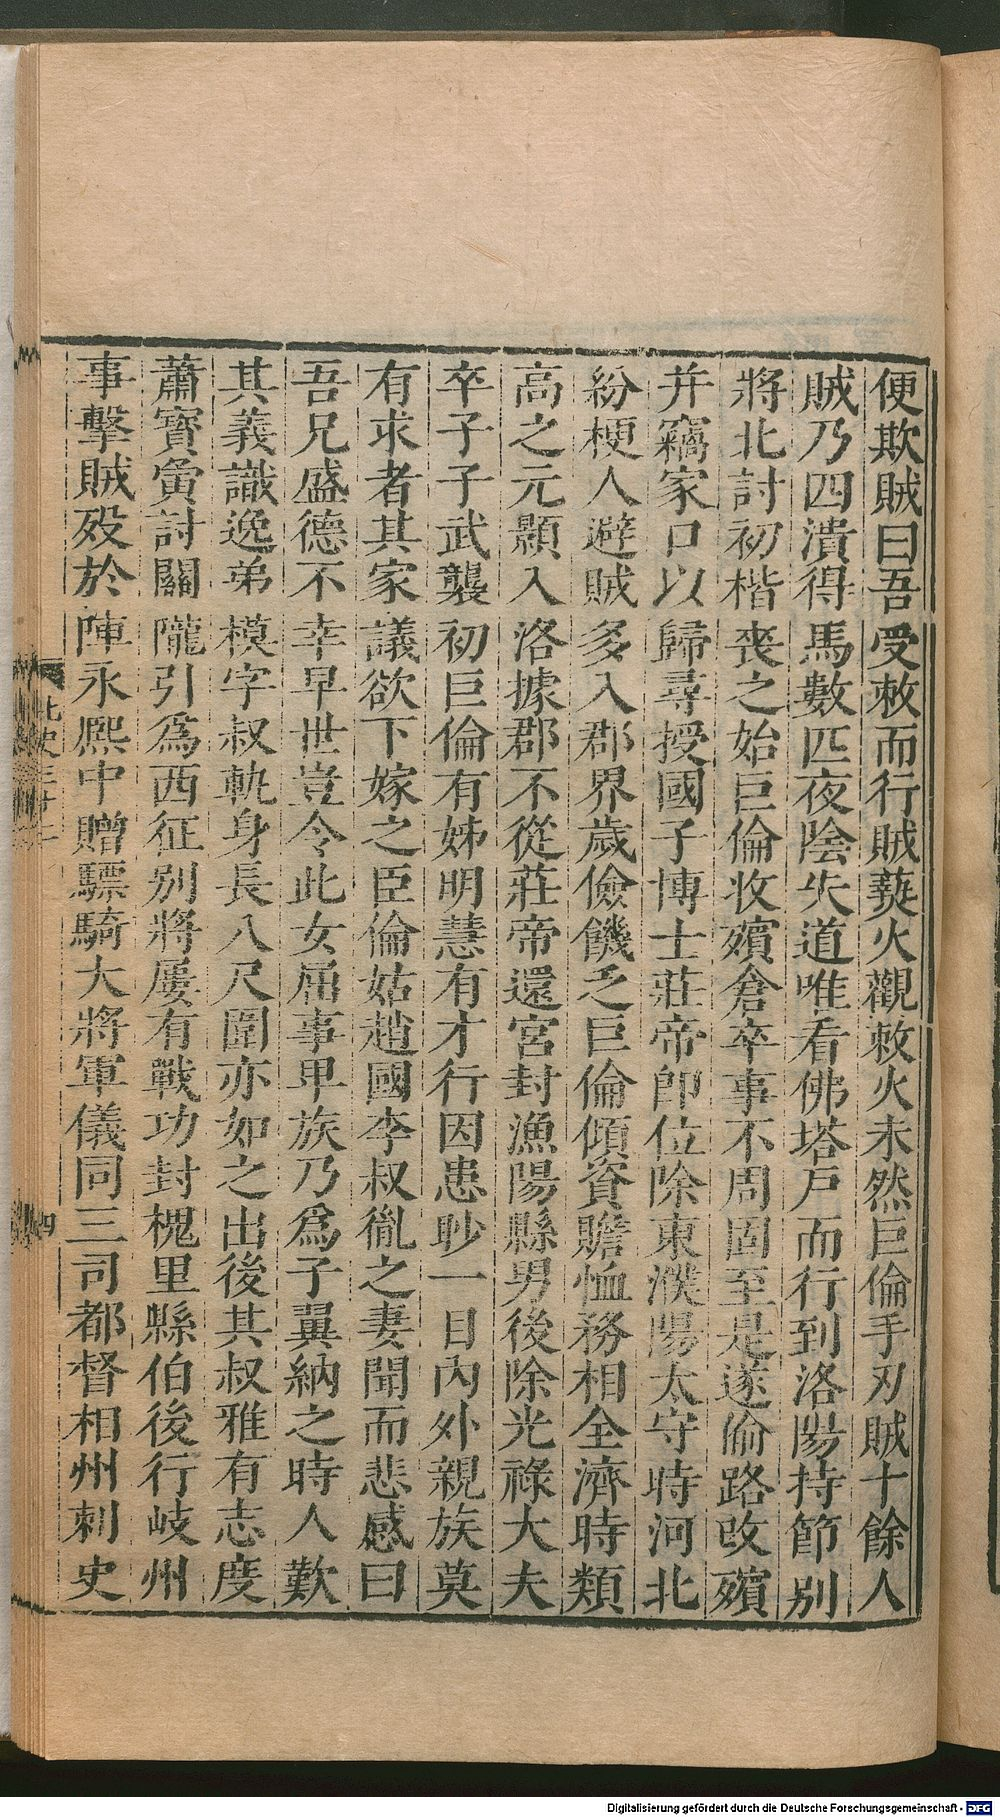 便欺賊曰吾受敕而行賊爇火觀敕火未然巨倫手刃賊十餘人
賊乃四潰得馬數匹夜陰失道唯看佛塔戶而行到洛陽持節別
將北討初楷喪之始巨倫收殯倉卒事不周固至是遂偷路改殯
并竊家口以歸尋授國子博士莊帝即位除東濮陽太守時河北
紛梗人避賊多入郡界歲儉饑乏巨倫傾資贍恤務相全濟時類
高之元顥入洛據郡不從莊帝還宮封漁陽縣男後除光祿大夫
卒子子武襲初巨倫有姊明慧有才行因患眇一目內外親族莫
有求者其家議欲下嫁之臣倫姑趙國李叔胤之妻聞而悲感曰
吾兄盛德不幸早世豈令此女屈事卑族乃爲子翼納之時人歎
其義識逸弟模字叔軌身長八尺圍亦如之出後其叔雅有志度
蕭寶夤討關隴引爲西征別將屢有戰功封槐里縣伯後行岐州
事擊賊歿於陣永熙中贈驃騎大將軍儀同三司都督相州刺史
北史三十二
四
Digitalisierung gefördert durch die Deutsche Forschungsgemeinschaft - DFG